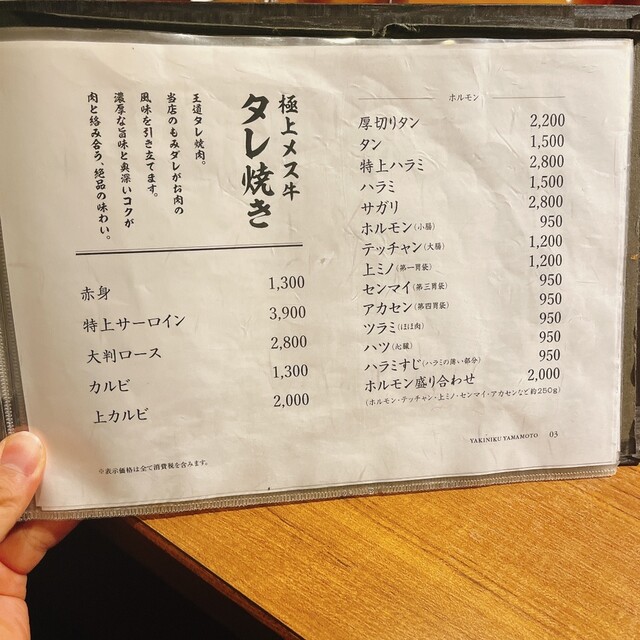 極上メス牛
タレ焼き
王道タレ焼肉。
当店のもみダレがお肉の
風味を引き立てます。
濃厚な旨味と奥深いコクが
肉と絡み合う、絶品の味わい。
赤身 1,300
特上サーロイン 3,900
大判ロース 2,800
カルビ 1,300
上カルビ 2,000
※表示価格は全て消費税を含みます。
ホルモン
厚切りタン 2,200
タン 1,500
特上ハラミ 2,800
ハラミ 1,500
サガリ 2,800
ホルモン(小腸) 950
テッチャン(大腸) 1,200
上ミノ(第一胃袋) 1,200
センマイ(第三胃袋) 950
アカセン(第四胃袋) 950
ツラミ(ほほ肉) 950
ハツ(心臓) 950
ハラミすじ(ハラミの薄い部分) 950
ホルモン盛り合わせ 2,000
(ホルモン・テッチャン・上ミノ・センマイ・アカセンなど約250g)
YAKINIKU YAMAMOTO 03